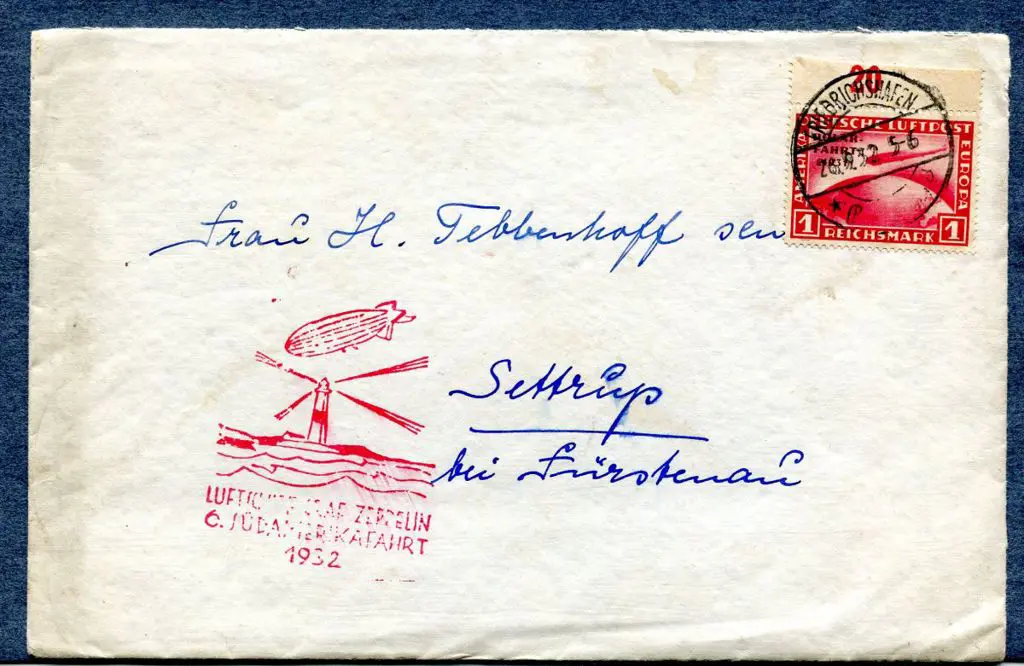 20
FRIEDRICHSHAFEN
DEUTSCHE LUFTPOST
AMERIKA
EUROPA
POLAR-
FAHRT
1931
5-6
1 REICHSMARK 1
Frau H. Tebbenhoff sen
Settrup
bei Fürstenau
LUFTSCHIFF GRAF ZEPPELIN
6. SÜDAMERIKAFAHRT
1932